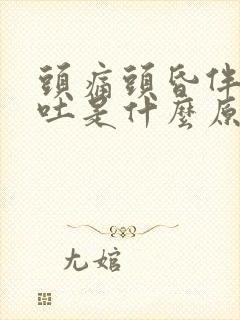 頭痛頭昏伴
吐是什麼原
尤婠